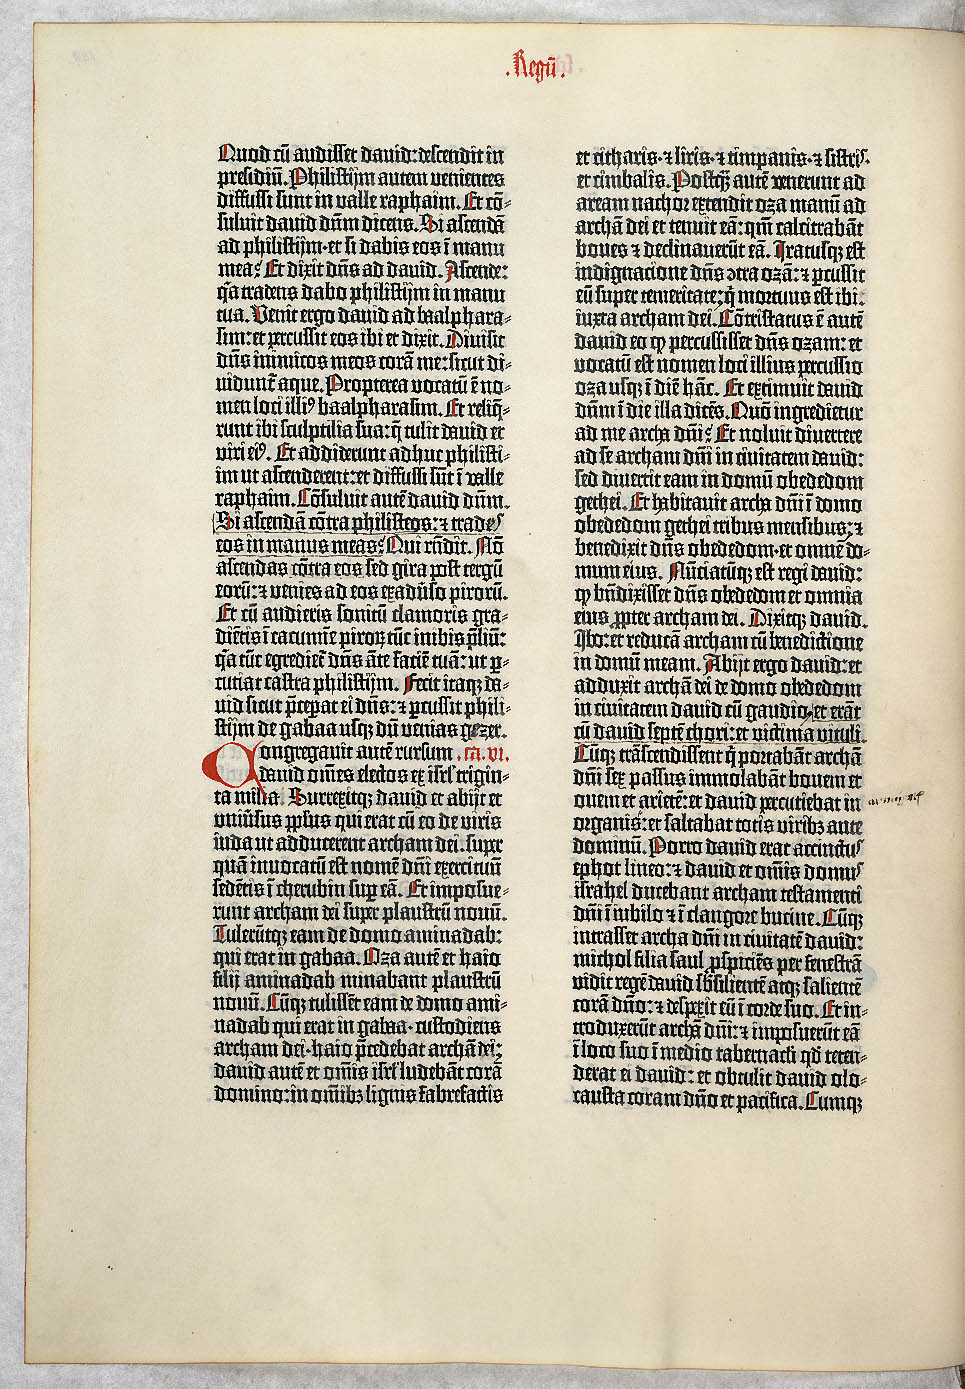 .Regū.
Quod cū audisset david: descendit in
presidiū. Philistijm autem venientes
diffusi sunt in valle raphaim. Et cō-
suluit david dn̄m dicens. Si ascendā
ad philistijm· et si dabis eos ī manu
mea? Et dixit dn̄s ad david. Ascende:
q̄a tradens dabo philistijm in manu
tua. Venit ergo david ad baalphara-
sim: et percussit eos ibi et dixit. Divisit
dn̄s inimicos meos corā me: sicut di-
vidunt̄ aque. Propterea vocatū ē no-
men loci illiꝰ baalpharasim. Et reliq̄-
runt ibi sculptilia sua: q̄ tulit david et
viri eiꝰ. Et addiderunt adhuc philisti-
im ut ascenderent: et diffusi sūt ī valle
raphaim. Cōsuluit autē david dn̄m.
Si ascendā cōtra philisteos: ⁊ trades
eos in manus meas? Qui rn̄dit. Nō
ascendas cōtra eos sed gira post tergū
eorū: ⁊ venies ad eos exadv̄so pirorū.
Et cū audieris sonitū clamoris gra-
diētis ī cacumīe piroꝝ tūc inibis p̄liū:
q̄a tūc egrediet̄ dn̄s āte faciē tuā: ut ꝑ-
cutiat castra philistijm. Fecit itaqꝫ da-
vid sicut p̄ceꝑat ei dn̄s: ⁊ ꝑcussit phili-
stijm de gabaa usqꝫ dū venias gezer.
Congregavit autē rursum .ca. vi.
david om̄es electos ex isrl̄ trigin-
ta milia. Surrexitqꝫ david et abijt et
univ̄sus ꝓplus qui erat cū eo de viris
iuda ut adducerent archam dei· super
quā invocatū est nomē dn̄i exercituū
sedētis ī cherubin suꝑ eā. Et imposue-
runt archam dei super plaustrū novū.
Tulerūtqꝫ eam de domo aminadab:
qui erat in gabaa. Oza autē et haio
filij aminadab minabant plaustrū
novū. Cūqꝫ tulissēt eam de domo ami-
nadab qui erat in gabaa· custodiens
archam dei· haio p̄cedebat archā dei:
david autē et om̄is isrl̄ ludebāt corā
domino: in om̄ibꝫ lignis fabrefactis
et citharis· ⁊ liris· ⁊ timpanis· ⁊ sistris·
et cimbalis. Postqꝫ autē venerunt ad
aream nachor extendit oza manū ad
archā dei et tenuit eā: qm̄ calcitrabāt
boves ⁊ declinaverūt eā. Iratusqꝫ est
indignatione dn̄s ꝯtra ozā: ⁊ ꝑcussit
eū super temeritate: q̄ mortuus est ibi
iuxta archam dei. Cōtristatus ē autē
david eo ꝙ percussisset dn̄s ozam: et
vocatū est nomen loci illius percussio
oza usqꝫ ī diē hāc. Et extimuit david
dn̄m ī die illa dicēs. Quō ingredietur
ad me archa dn̄i? Et noluit divertere
ad se archam dn̄i in civitatem david:
sed divertit eam in domū obededom
gethei. Et habitavit archa dn̄i ī domo
obededom gethei tribus mensibus: ⁊
benedixit dn̄s obededom· et omnē do-
mum eius. Nūciatūqꝫ est regi david:
ꝙ bn̄dixisset dn̄s obededom et omnia
eius ꝓpter archam dei. Dixitqꝫ david.
Ibo: et reducā archam cū benedictione
in domū meam. Abijt ergo david: et
adduxit archā dei de domo obededom
in civitatem david cū gaudio· et erāt
cū david septē chori: et victima vituli.
Cūqꝫ trāscendissent q̄ portabāt archā
dn̄i sex passus immolabāt bovem et
ovem et arietē: et david percutiebat in
organis: et saltabat totis viribꝫ ante
dominū. Porro david erat accinctus
ephot lineo: ⁊ david et om̄is domus
israhel ducebant archam testamenti
dn̄i ī iubilo ⁊ ī clangore bucine. Cūqꝫ
intrasset archa dn̄i in civitatē david:
michol filia saul ꝓspiciēs per fenestrā
vidit regē david sb̄silientē atqꝫ salientē
corā dn̄o: ⁊ despexit eū ī corde suo. Et in-
troduxerūt archā dn̄i: ⁊ imposuerūt eā
ī loco suo ī medio tabernacli qd̄ teten-
derat ei david: et obtulit david olo-
causta coram dn̄o et pacifica. Cumqꝫ